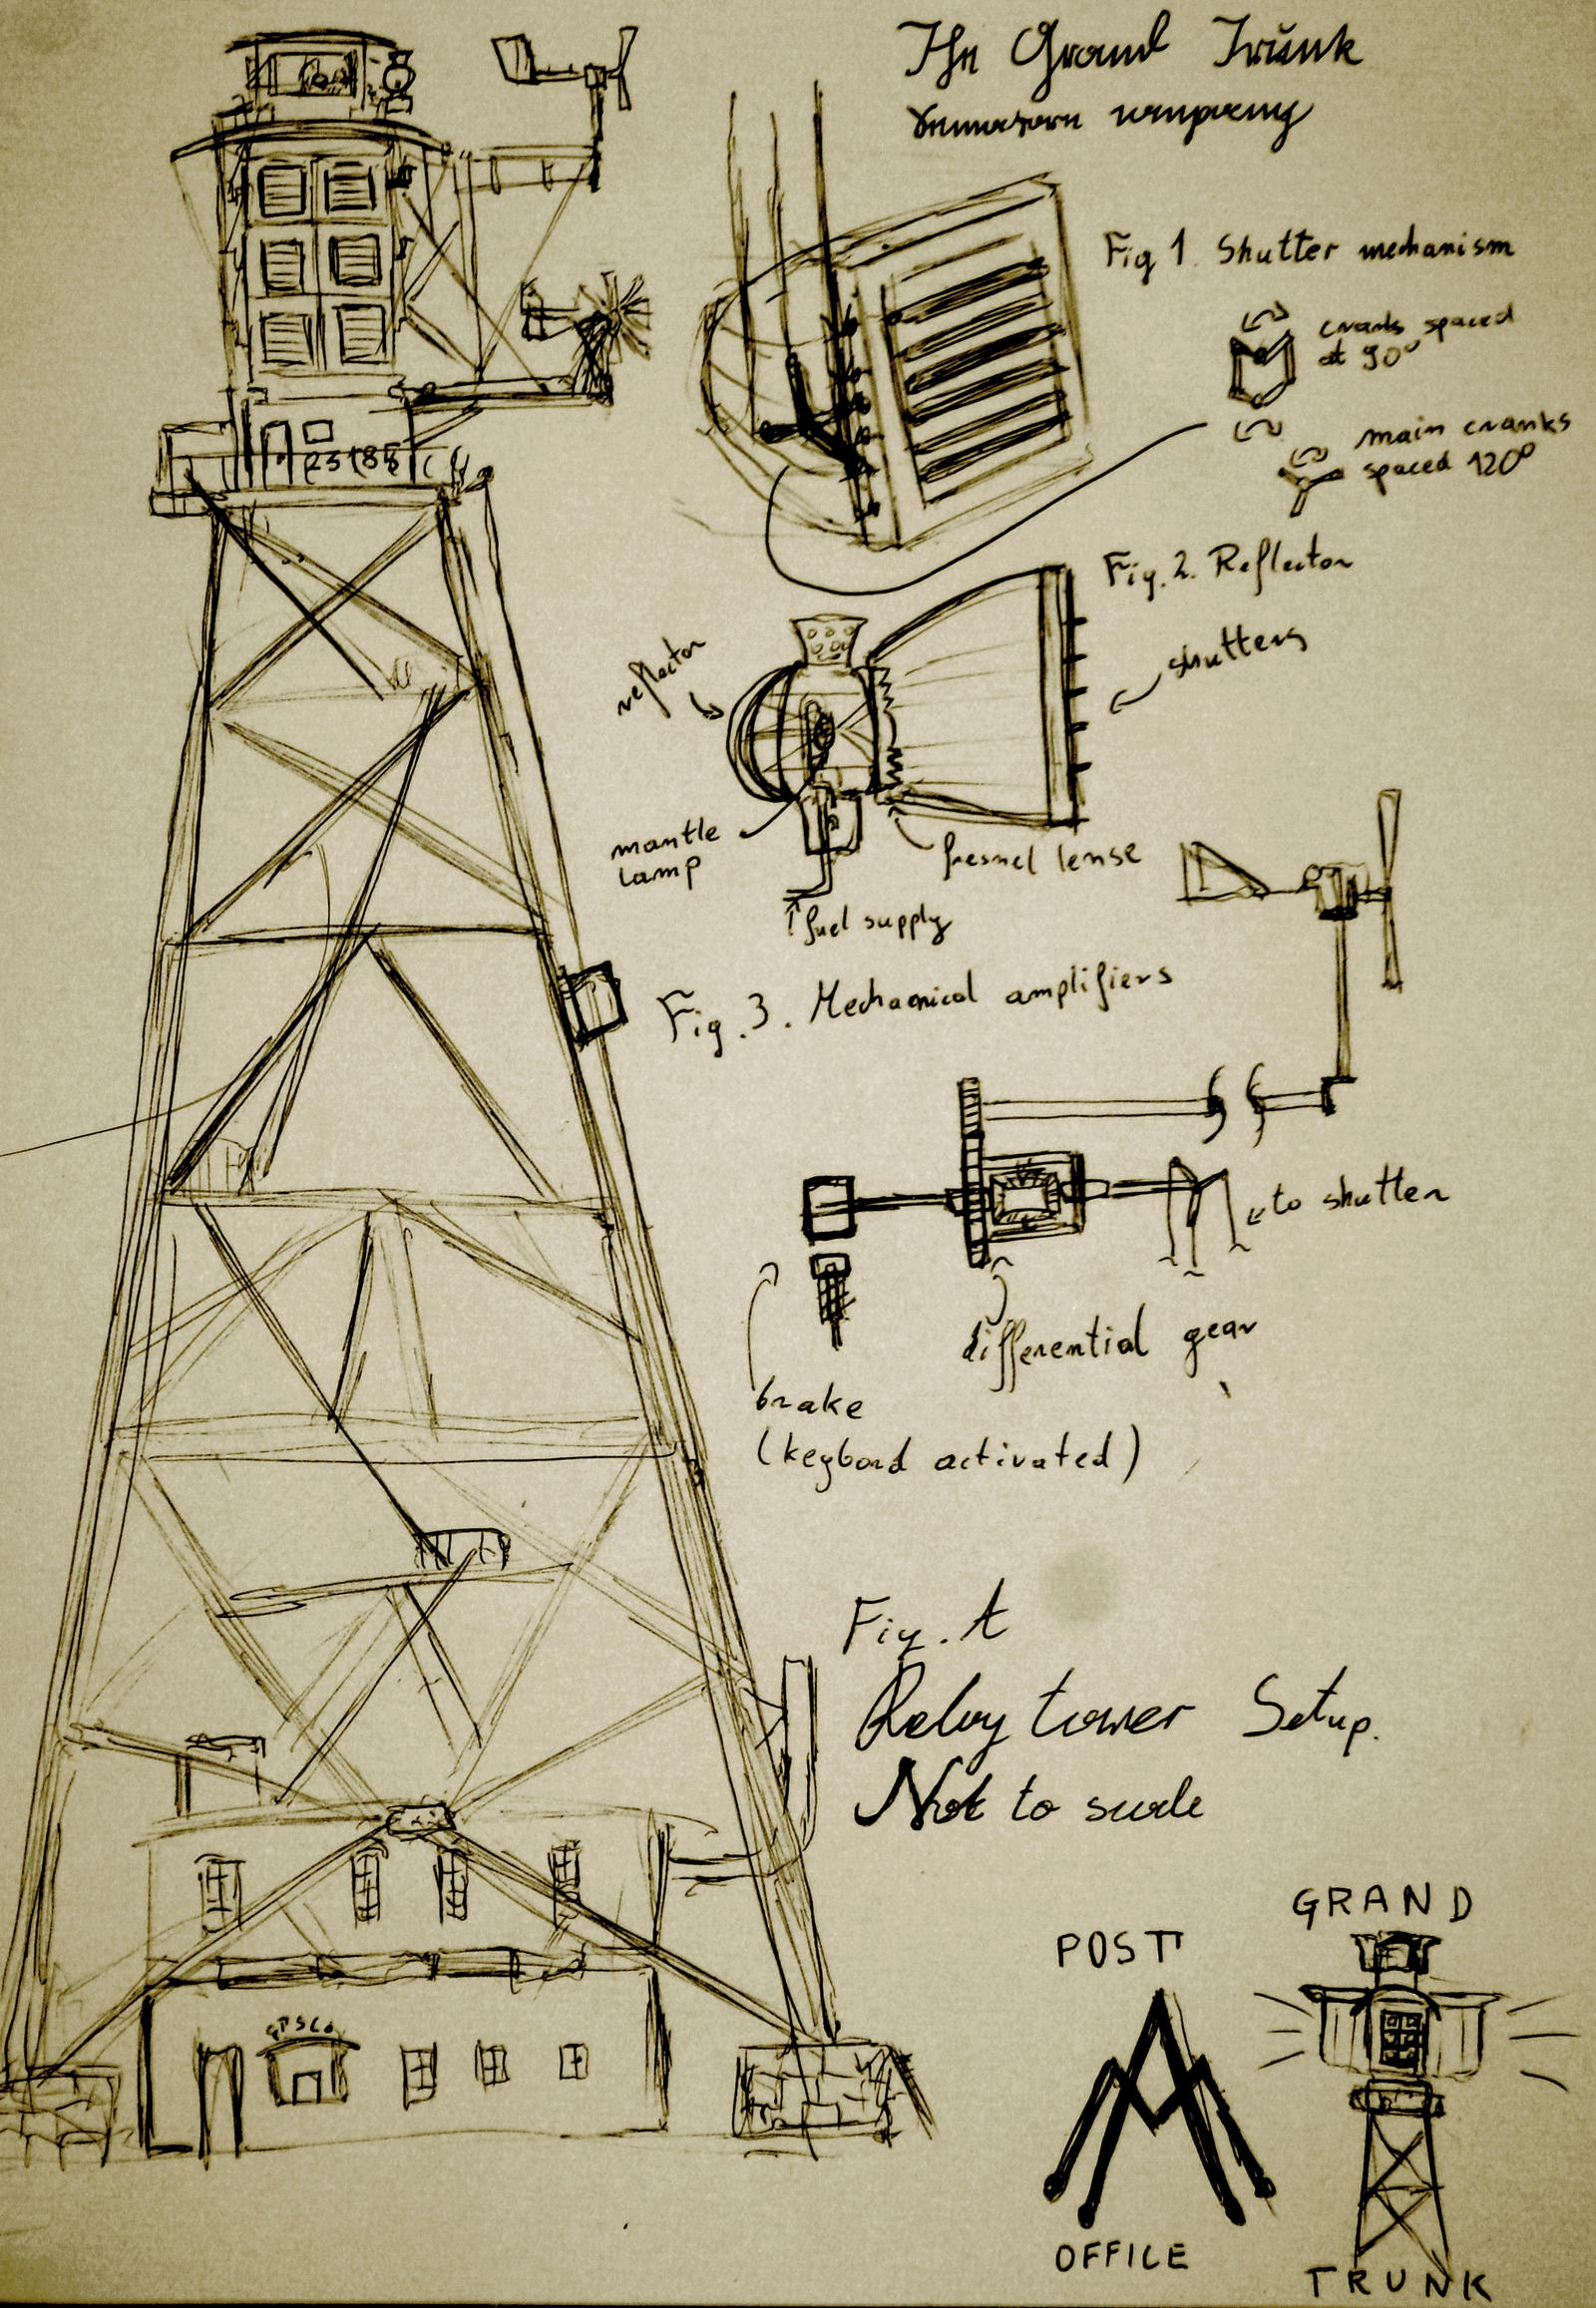 The Grand Trunk
company
Fig 1. Shutter mechanism
cranks spaced
at 90°
main cranks
spaced 120°
Fig. 2. Reflector
reflector
shutters
mantle
lamp
fresnel lense
fuel supply
Fig. 3. Mechaenical amplifiers
to shutter
differential gear
brake
(keybord activated)
Fig. A
Relay tower Setup.
Not to scale
GPSCo
POST
OFFICE
GRAND
TRUNK